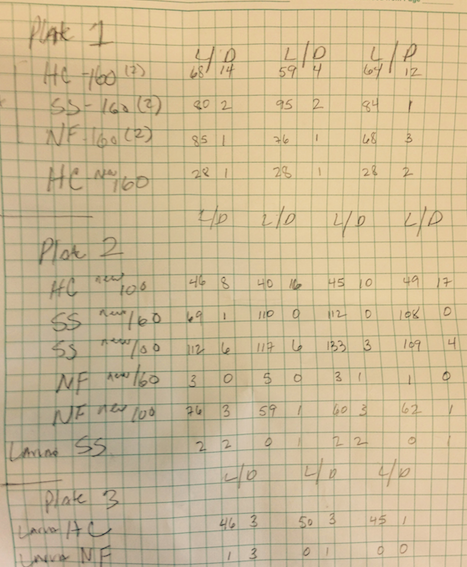 Plate 1
L/D L/D L/D
HC-160 (2) 68 14 59 4 64 12
SS-160 (2) 80 2 95 2 84 1
NF-160 (2) 85 1 76 1 68 3
HC new 160 28 1 28 1 28 2
L/D L/D L/D L/D
Plate 2
HC new 100 46 8 40 16 45 10 49 17
SS new 160 69 1 110 0 112 0 108 0
SS new 100 112 6 117 6 133 3 109 4
NF new 160 3 0 5 0 3 1 1 0
NF new 100 76 3 59 1 60 3 62 1
Larva SS 2 2 0 1 2 2 0 1
L/D L/D L/D
Plate 3
Larva HC 46 3 50 3 45 1
Larva NF 1 3 0 1 0 0